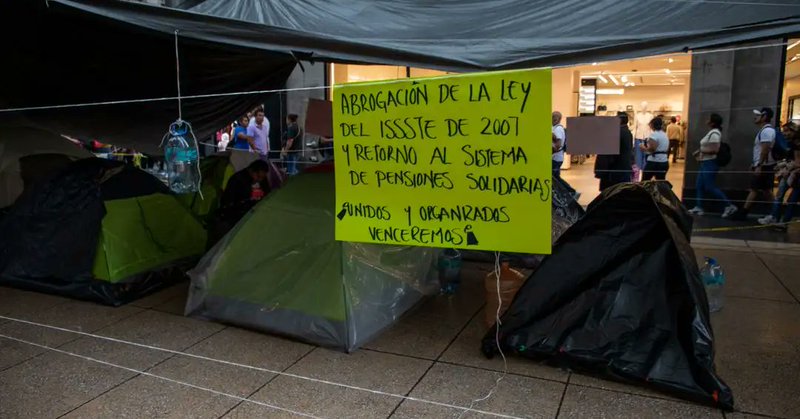 ABROGACIÓN DE LA LEY
DEL ISSSTE DE 2007
Y RETORNO AL SISTEMA
DE PENSIONES SOLIDARIAS
¡UNIDOS Y ORGANIZADOS
VENCEREMOS!